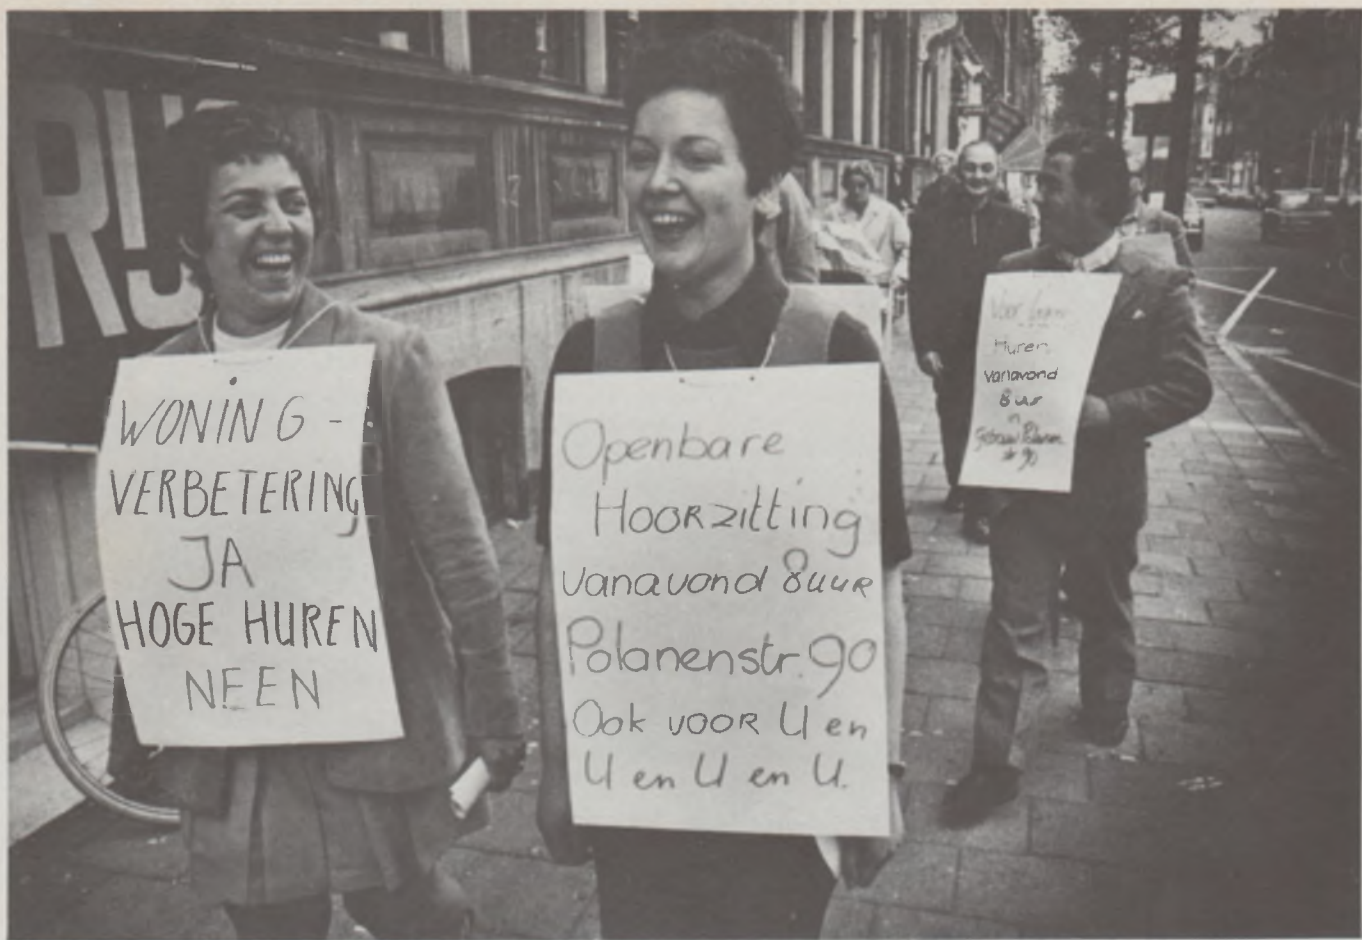 RIJ
WONING-
VERBETERING
JA
HOGE HUREN
NEEN
Openbare
Hoorzitting
vanavond 8 uur
Polanenstr. 90
Ook voor U en
U en U en U.
Voor
Huren
vanavond
8 uur
in
Gebouw Polanen
90